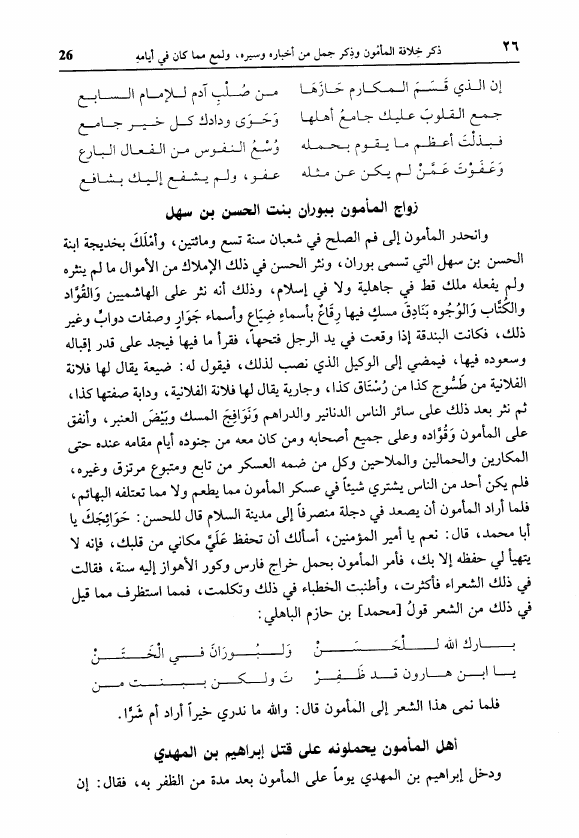 ٢٦ ذكر خلافة المأمون وذكر جمل من أخباره وسيره، ولمع مما كان في أيامه 26
إن الـذي قَسَـمَ الـمكـارم حَـازَهَـا مـن صُـلْبِ آدم لـلإمام الـسـابـع
جمع القلوبَ عليك جامعُ أهلها وَحَوَى ودادك كـل خيـر جـامـع
فبذلْتَ أعظم ما يـقـوم بـحمـلـه وُسْعُ النفوس من الفعال البارع
وَعَفَوْتَ عَمَّنْ لم يكن عن مثله عفـو، ولـم يشفـع إليـك بـشافـع
زواج المأمون ببوران بنت الحسن بن سهل
وانحدر المأمون إلى فم الصلح في شعبان سنة تسع ومائتين، وأمْلَكَ بخديجة ابنة
الحسن بن سهل التي تسمى بوران، ونثر الحسن في ذلك الإملاك من الأموال ما لم ينثره
ولم يفعله ملك قط في جاهلية ولا في إسلام، وذلك أنه نثر على الهاشميين وَالقُوَّاد
والكُتَّاب وَالوُجُوه بَنَادِقَ مسكٍ فيها رِقَاعٌ بأسماءِ ضِيَاعٍ وأسماء جَوَارٍ وصفات دوابٌ وغير
ذلك، فكانت البندقة إذا وقعت في يد الرجل فتحها، فقرأ ما فيها فيجد على قدر إقباله
وسعوده فيها، فيمضي إلى الوكيل الذي نصب لذلك، فيقول له: ضيعة يقال لها فلانة
الفلانية من طَسُّوج كذا من رُسْتَاق كذا، وجارية يقال لها فلانة الفلانية، ودابة صفتها كذا،
ثم نثر بعد ذلك على سائر الناس الدنانير والدراهم وَنَوَافِجَ المسك وبَيْضَ العنبر، وأنفق
على المأمون وَقُوَّاده وعلى جميع أصحابه ومن كان معه من جنوده أيام مقامه عنده حتى
المكارين والحمالين والملاحين وكل من ضمه العسكر من تابع ومتبوع مرتزق وغيره،
فلم يكن أحد من الناس يشتري شيئاً في عسكر المأمون مما يطعم ولا مما تعتلفه البهائم،
فلما أراد المأمون أن يصعد في دجلة منصرفاً إلى مدينة السلام قال للحسن: حَوَائِجَكَ يا
أبا محمد، قال: نعم يا أمير المؤمنين، أسألك أن تحفظ عَلَيَّ مكاني من قلبك، فإنه لا
يتهيأ لي حفظه إلا بك، فأمر المأمون بحمل خراج فارس وكور الأهواز إليه سنة، فقالت
في ذلك الشعراء فأكثرت، وأطنبت الخطباء في ذلك وتكلمت، فمما استظرف مما قيل
في ذلك من الشعر قولُ [محمد] بن حازم الباهلي:
بـــارك الله لـــلْـحَـــسَـــنْ وَلـــبُـــورَانَ فـــي الْخَـــتَـــنْ
يـــا ابـــن هـــارون قـــد ظَـــفِـــرْ تَ ولـــكـــن بـــبـــنـــت مـــن
فلما نمى هذا الشعر إلى المأمون قال: والله ما ندري خيراً أراد أم شرًّا.
أهل المأمون يحملونه على قتل إبراهيم بن المهدي
ودخل إبراهيم بن المهدي يوماً على المأمون بعد مدة من الظفر به، فقال: إن